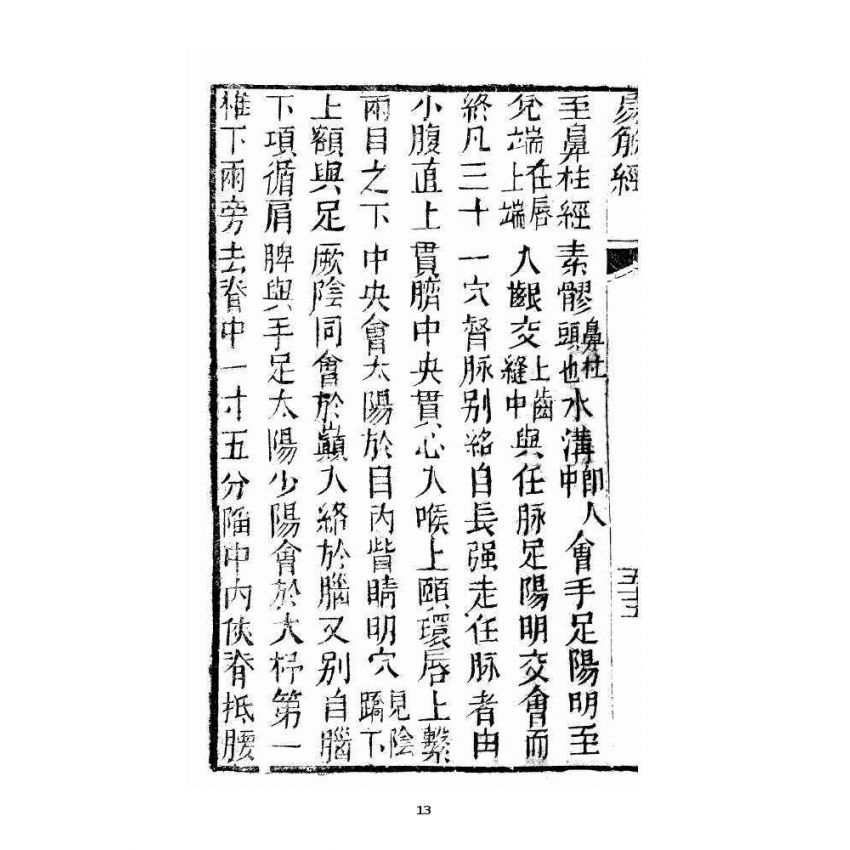 易筋經
五十五
至鼻柱經素髎鼻柱頭也水溝即人中會手足陽明至
兌端在唇上端入齦交上齒縫中與任脉足陽明交會而
終凡三十一穴督脉别絡自長强走任脉者由
小腹直上貫臍中央貫心入喉上頤環唇上繫
兩目之下中央會太陽於目内眥睛明穴見陰蹻下
上額與足厥陰同會於巔入絡於腦又别自腦
下項循肩脾與手足太陽少陽會於大杼第一
椎下兩旁去脊中一寸五分陷中内俠脊抵腰
13